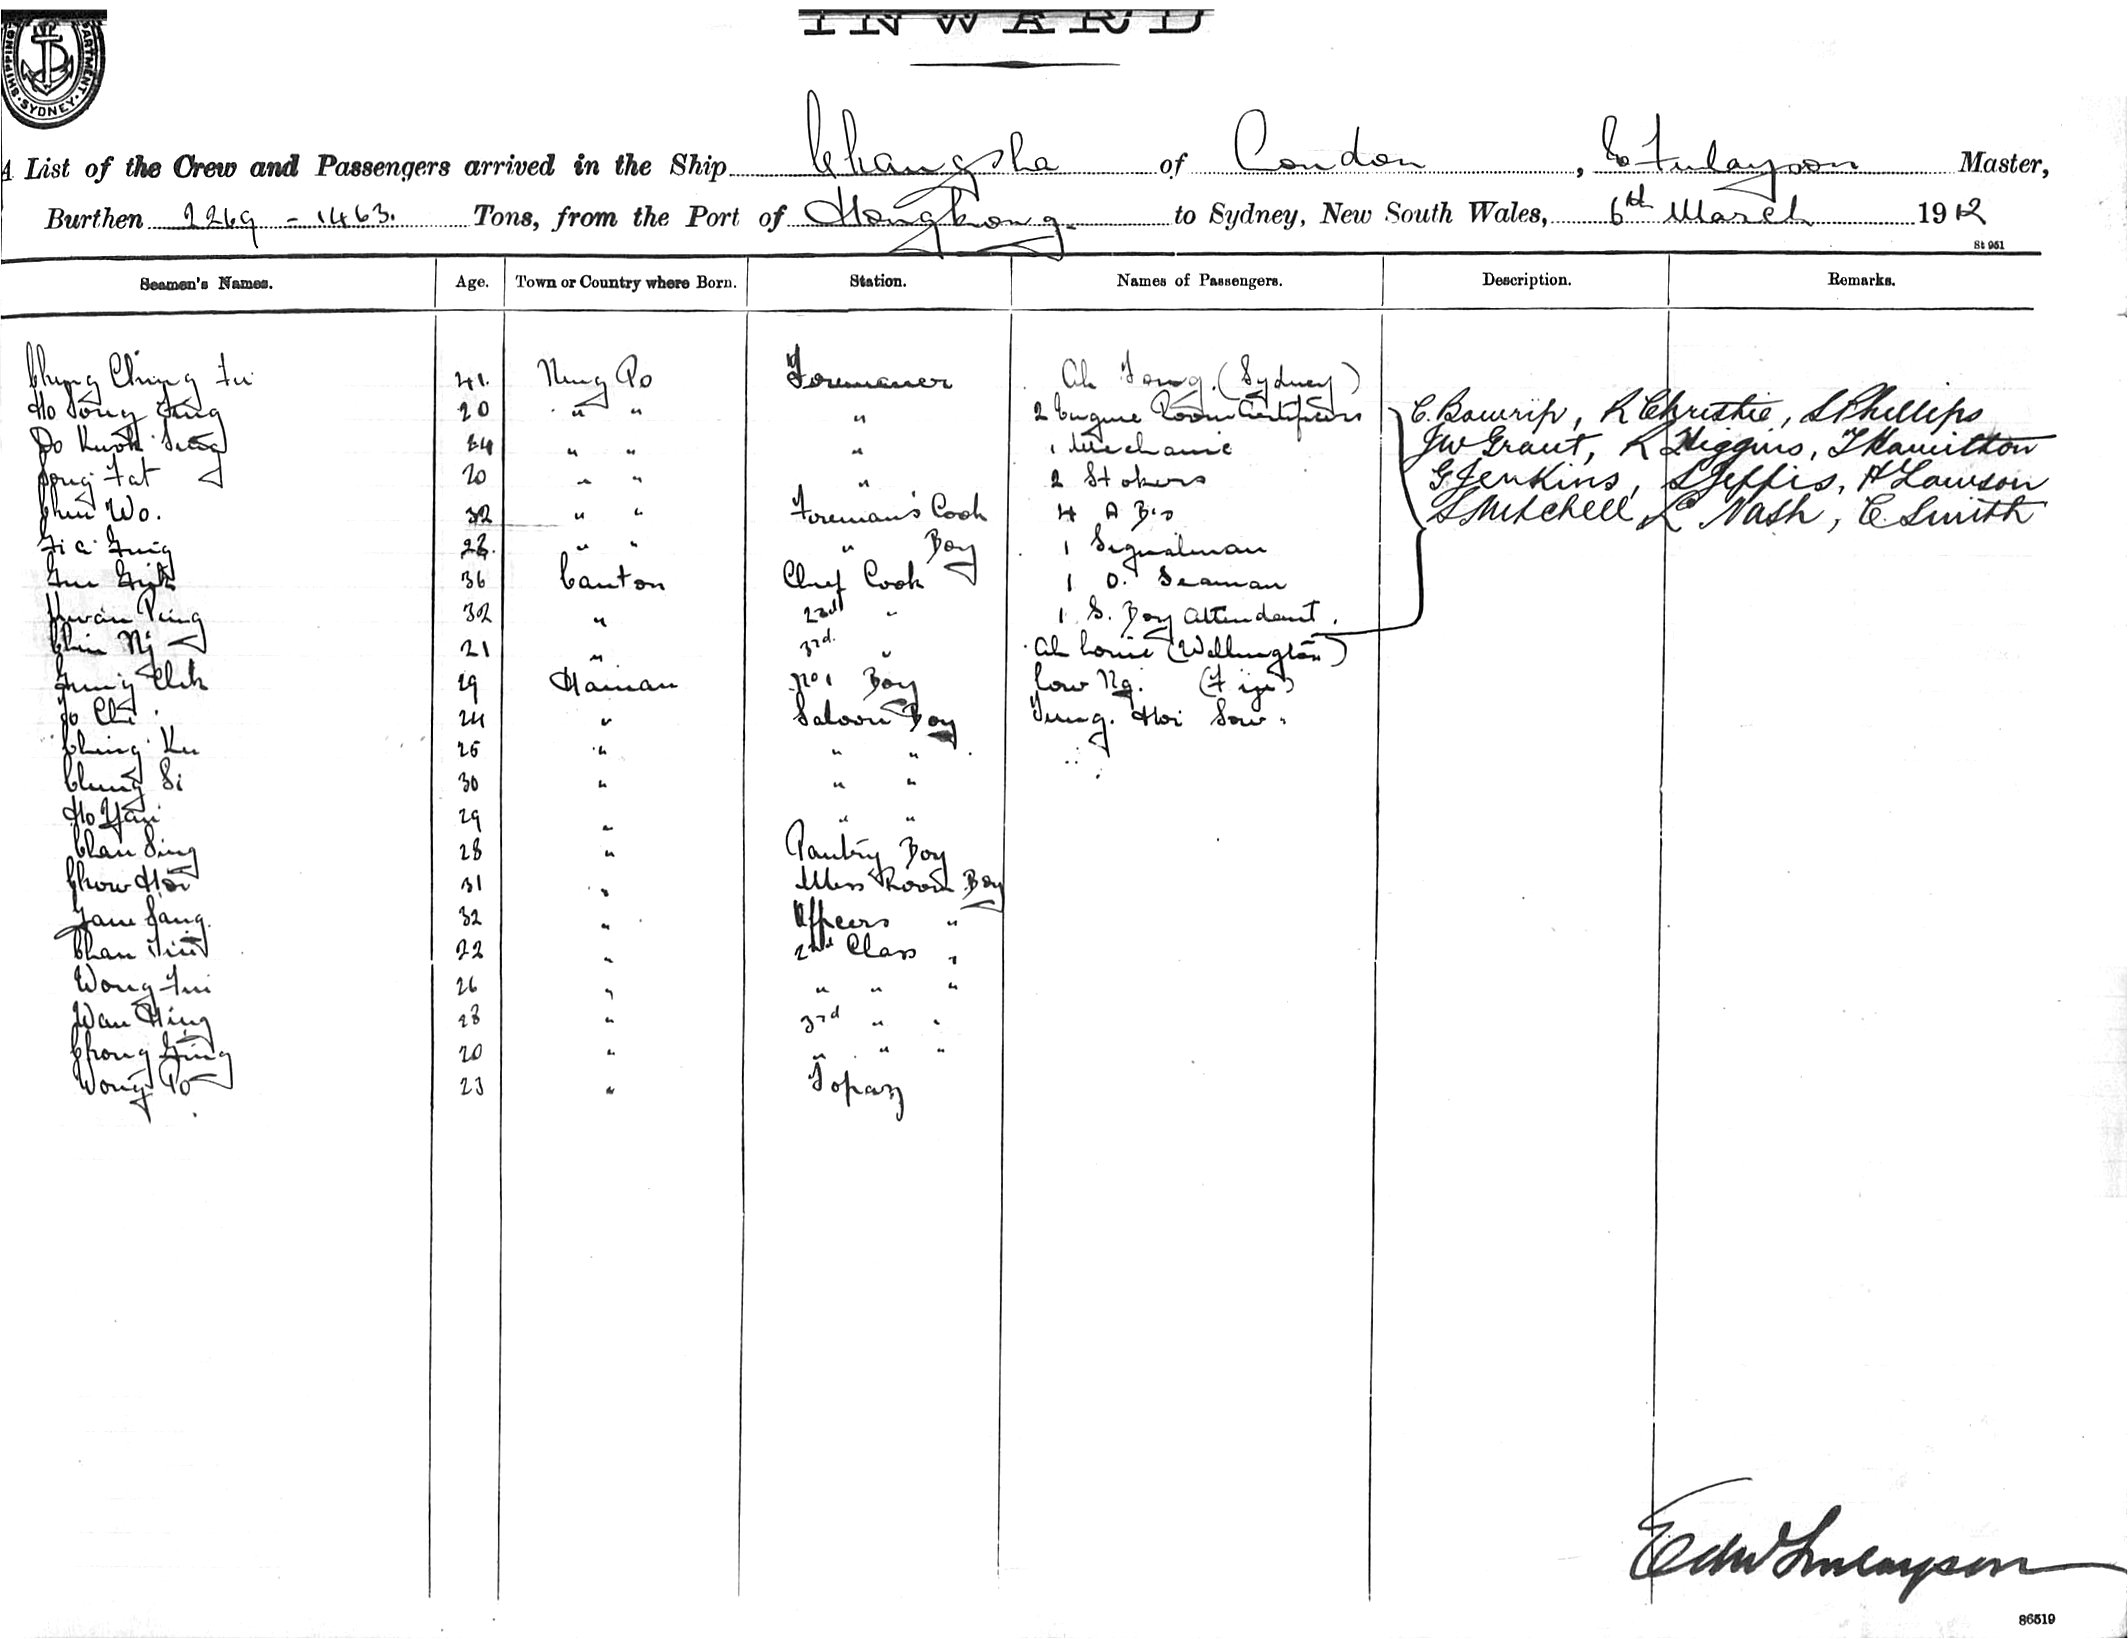 INWARD
SHIPPING DEPARTMENT SYDNEY
A List of the Crew and Passengers arrived in the Ship Changsha of London, E Finlayson Master,
Burthen 2269 - 1463. Tons, from the Port of Hongkong to Sydney, New South Wales, 6th March 1912
St 951
Seamen's Names. Age. Town or Country where Born. Station. Names of Passengers. Description. Remarks.
Chung Ching Fu 41. Ning Po Ah Fong. (Sydney)
Ho Song 20 " " " 2 Engine Room Artificers C. Bowrip, R Christie, S Phillips
Kwok 24 " " " 1 Mechanic JW Grant, R Higgins, T Hamilton
Fat 20 " " " 2 Stokers G Jenkins, S Jeffis, H Lawson
Chin Wo. 32 " " Foreman's Cook 4 A B's S Mitchell, L Nash, C. Smith
" " " Boy 1 Signalman
36 Canton Chief Cook 1 O. Seaman
Kwan Ping 32 " 2nd " 1 S. Boy Attendant.
Chin Ng 21 " 3rd. " Ah Louie (Wellington)
29 Hainan No 1 Boy Low Ng. (Fiji)
24 " Saloon Boy Tung. Hoi Sow.
Ching 26 " " "
Chung Si 30 " " "
Ho Yau 29 " " "
Chan Sing 28 " Pantry Boy
Chow Hoi 31 " Mess Room Boy
Yam Sang. 32 " Officers "
Chan 22 " 2nd Class "
Wong Fui 26 " " " "
Wan Hing 28 " 3rd " "
Chong 20 " " " "
Wong Po 23 " Topaz
Edw Finlayson
86519